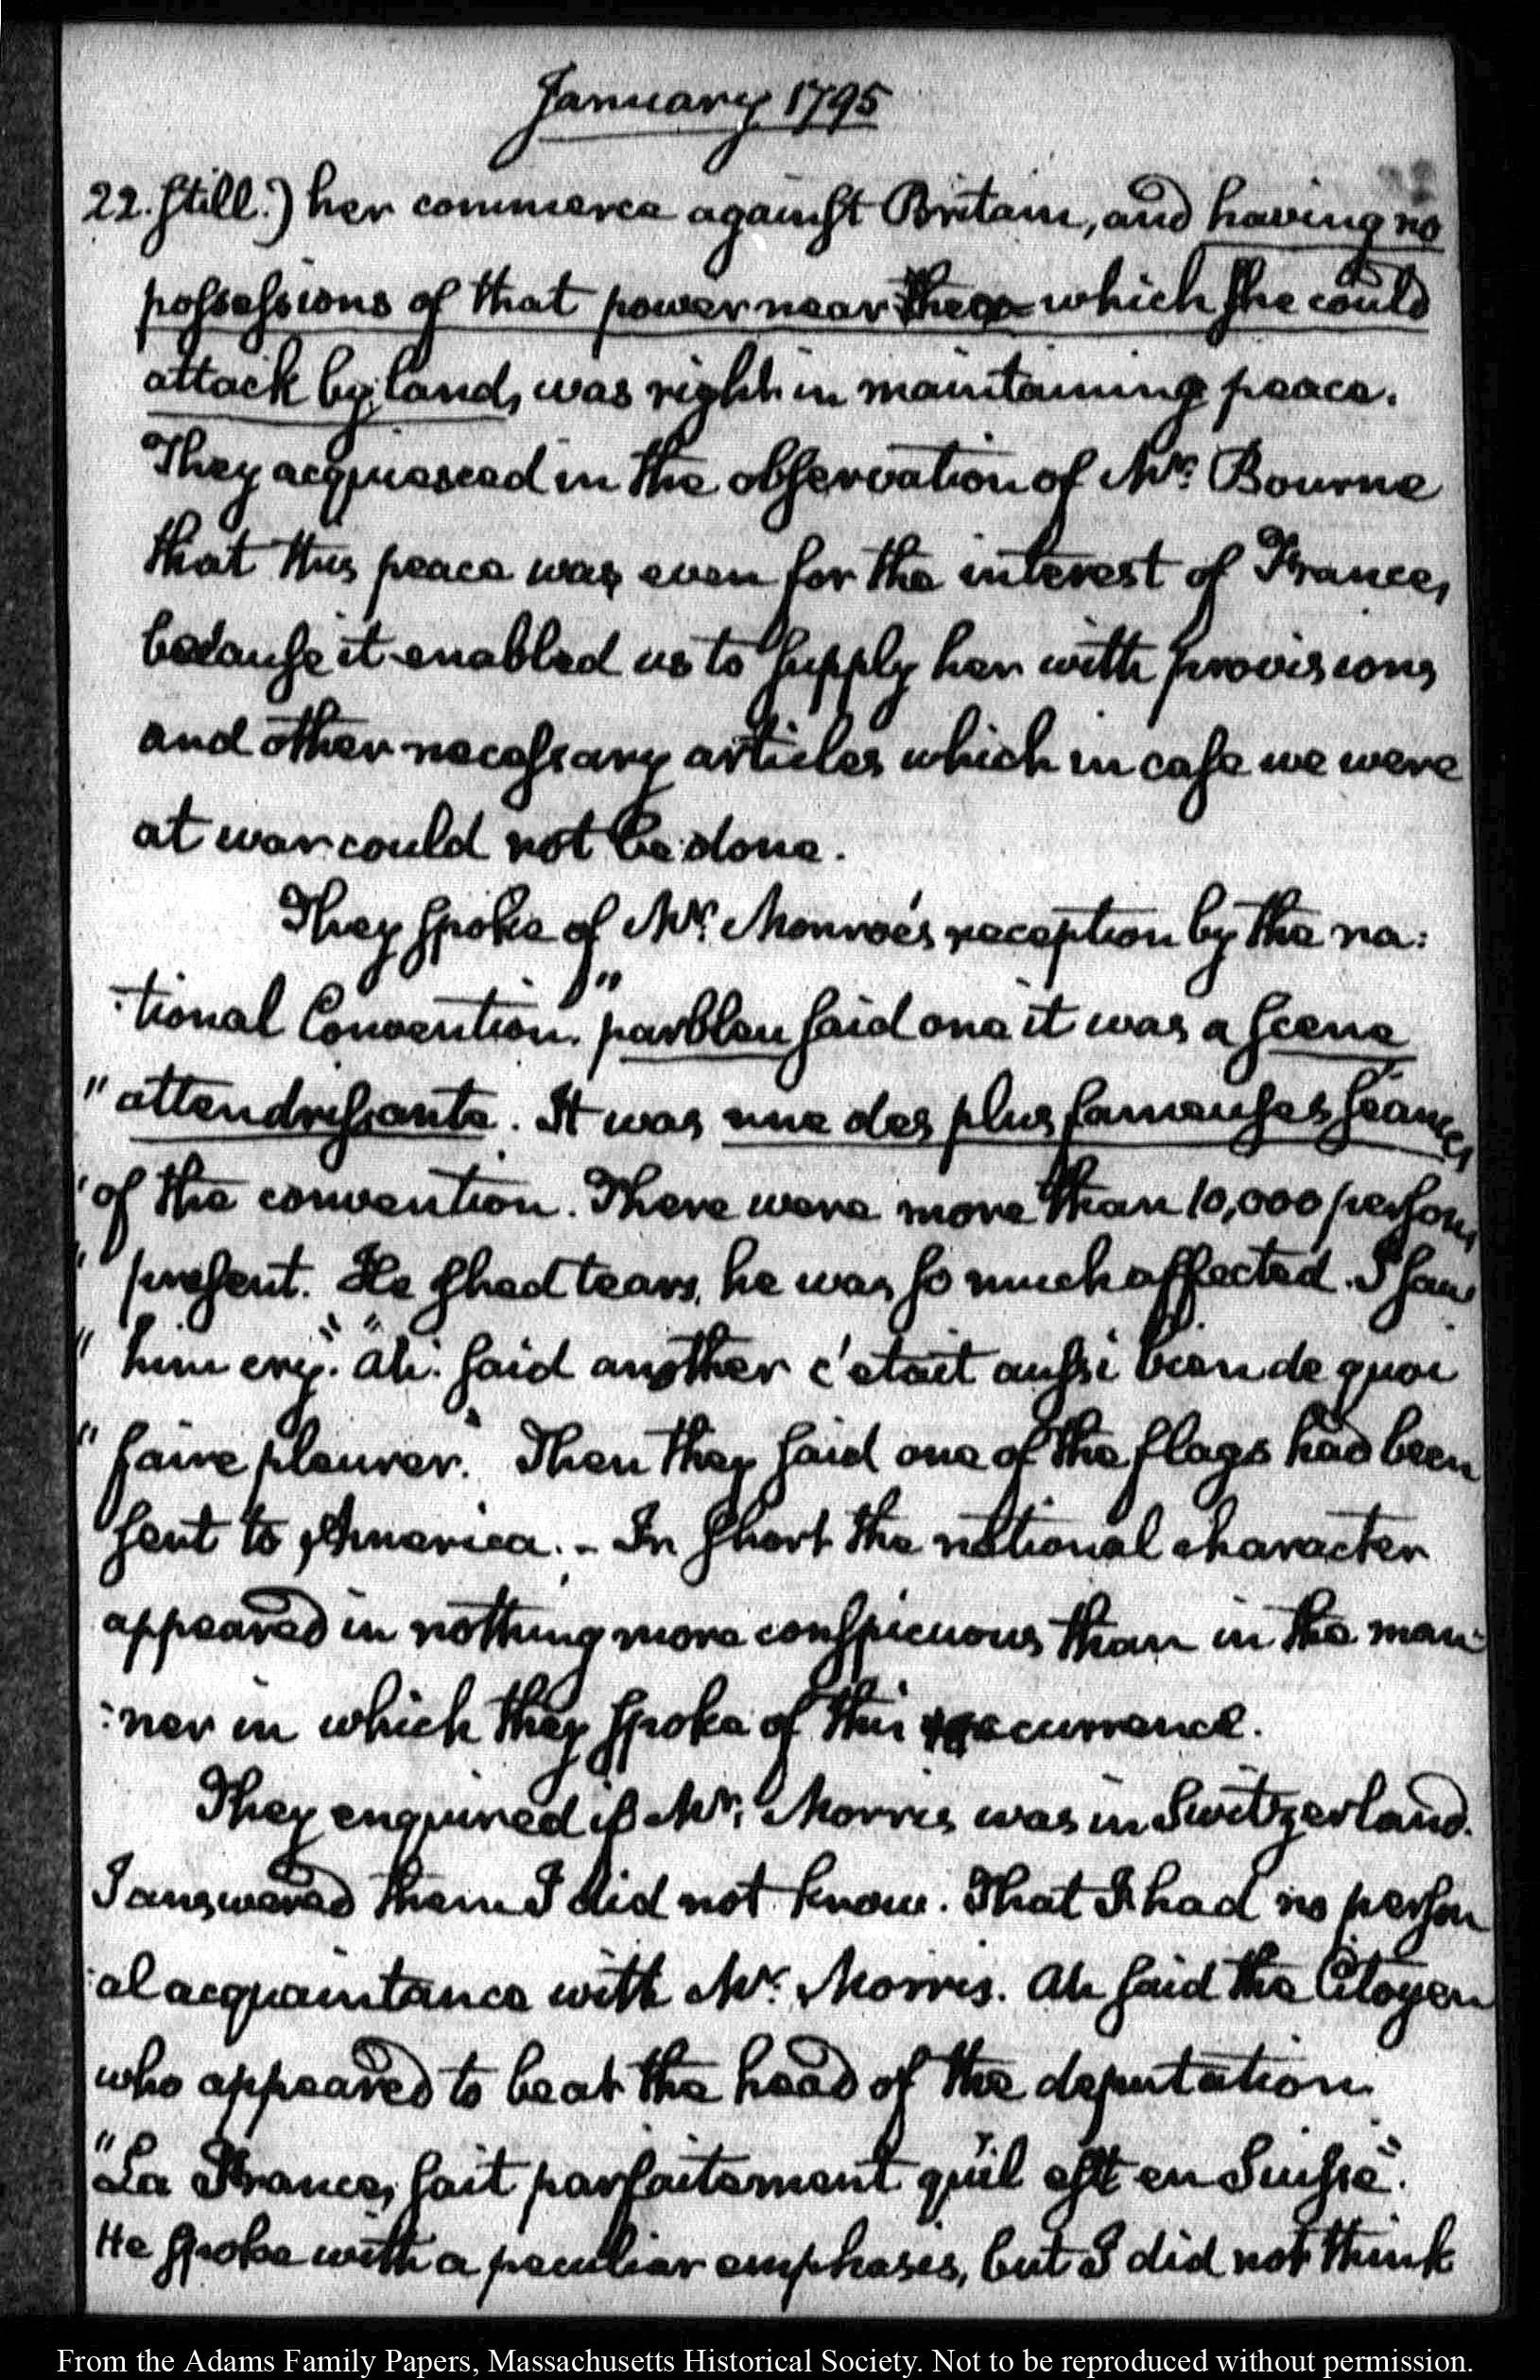 January 1795
22. still.) her commerce against Britain, and having no
possessions of that power near which she could
attack by land, was right in maintaining peace.
They acquiesced in the observation of Mr. Bourne
that this peace was even for the interest of France,
because it enabled us to supply her with provisions
and other necessary articles which in case we were
at war could not be done.
They spoke of Mr. Monroe's reception by the na:
:tional Convention. "parbleu said one it was a scene
" attendrissante. It was une des plus fameuses séances
" of the convention. There were more than 10,000 persons
" present. He shed tears, he was so much affected. I saw
" him cry." "ah. said another c'etait aussi bien de quoi
" faire pleurer." Then they said one of the flags had been
sent to America. - In short the national character
appeared in nothing more conspicuous than in the man:
:ner in which they spoke of this occurrence.
They enquired if Mr. Morris was in Switzerland.
I answered them I did not know. That I had no person
:al acquaintance with Mr. Morris. Ah said the Citoyen
who appeared to be at the head of the deputation.
"La France, sait parfaitement qu'il est en Suisse".
He spoke with a peculiar emphasis, but I did not think
From the Adams Family Papers, Massachusetts Historical Society. Not to be reproduced without permission.